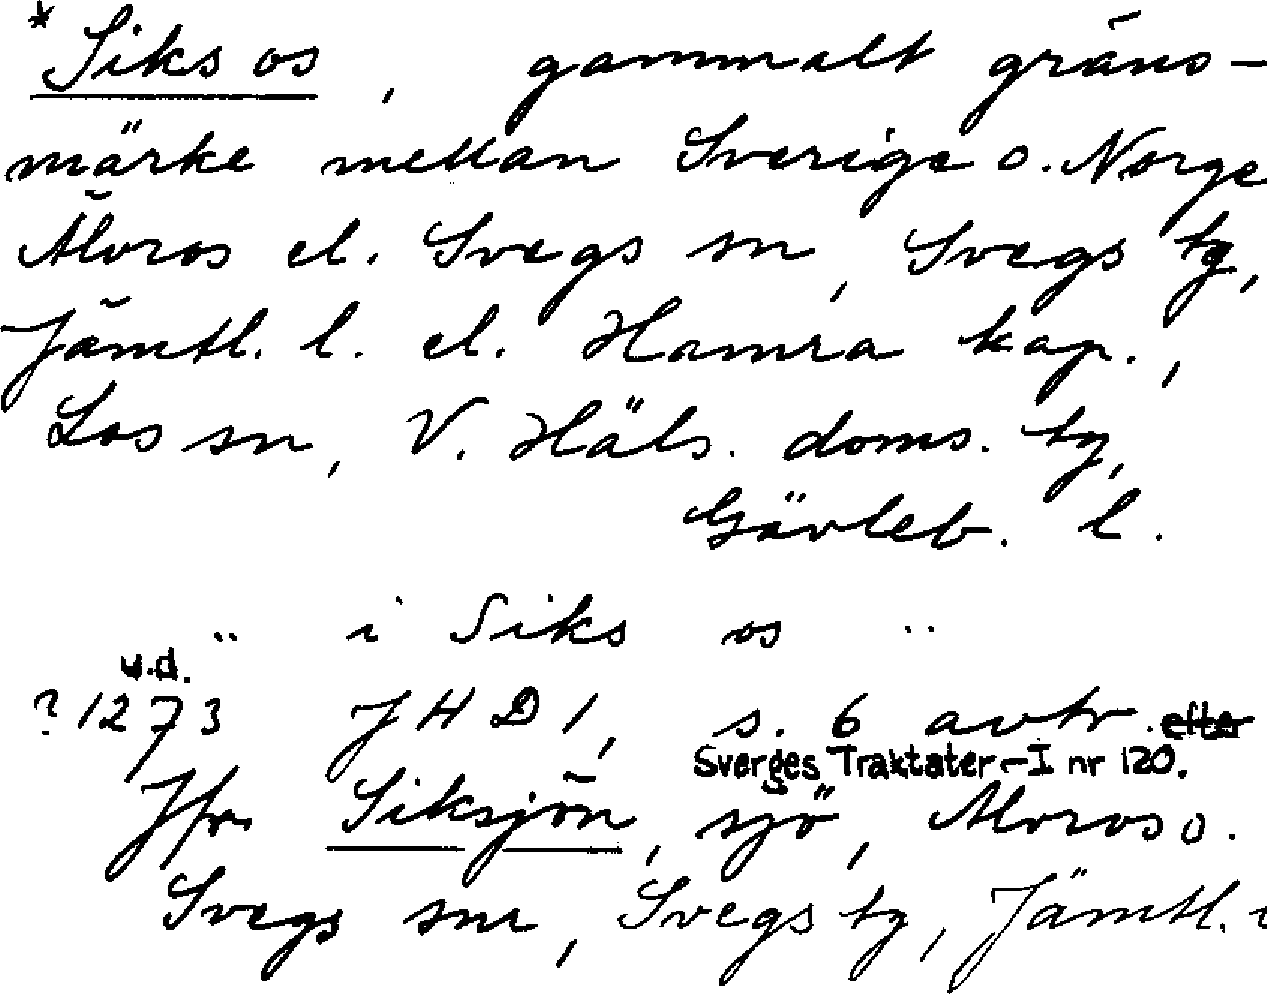 * Siks os, gammalt gräns-
märke mellan Sverige o. Norge
Älvros el. Svegs sn, Svegs tg,
Jämtl. l. el. Hamra kap.,
Los sn, V. Häls. doms. tg,
Gävleb. l.
.. i Siks os ..
u.d.
? 1273 JHD 1, s. 6 avtr. efter
Sverges Traktater - I nr 120.
Jfr Siksjön, sjö, Älvros o.
Svegs snr, Svegs tg, Jämtl. l